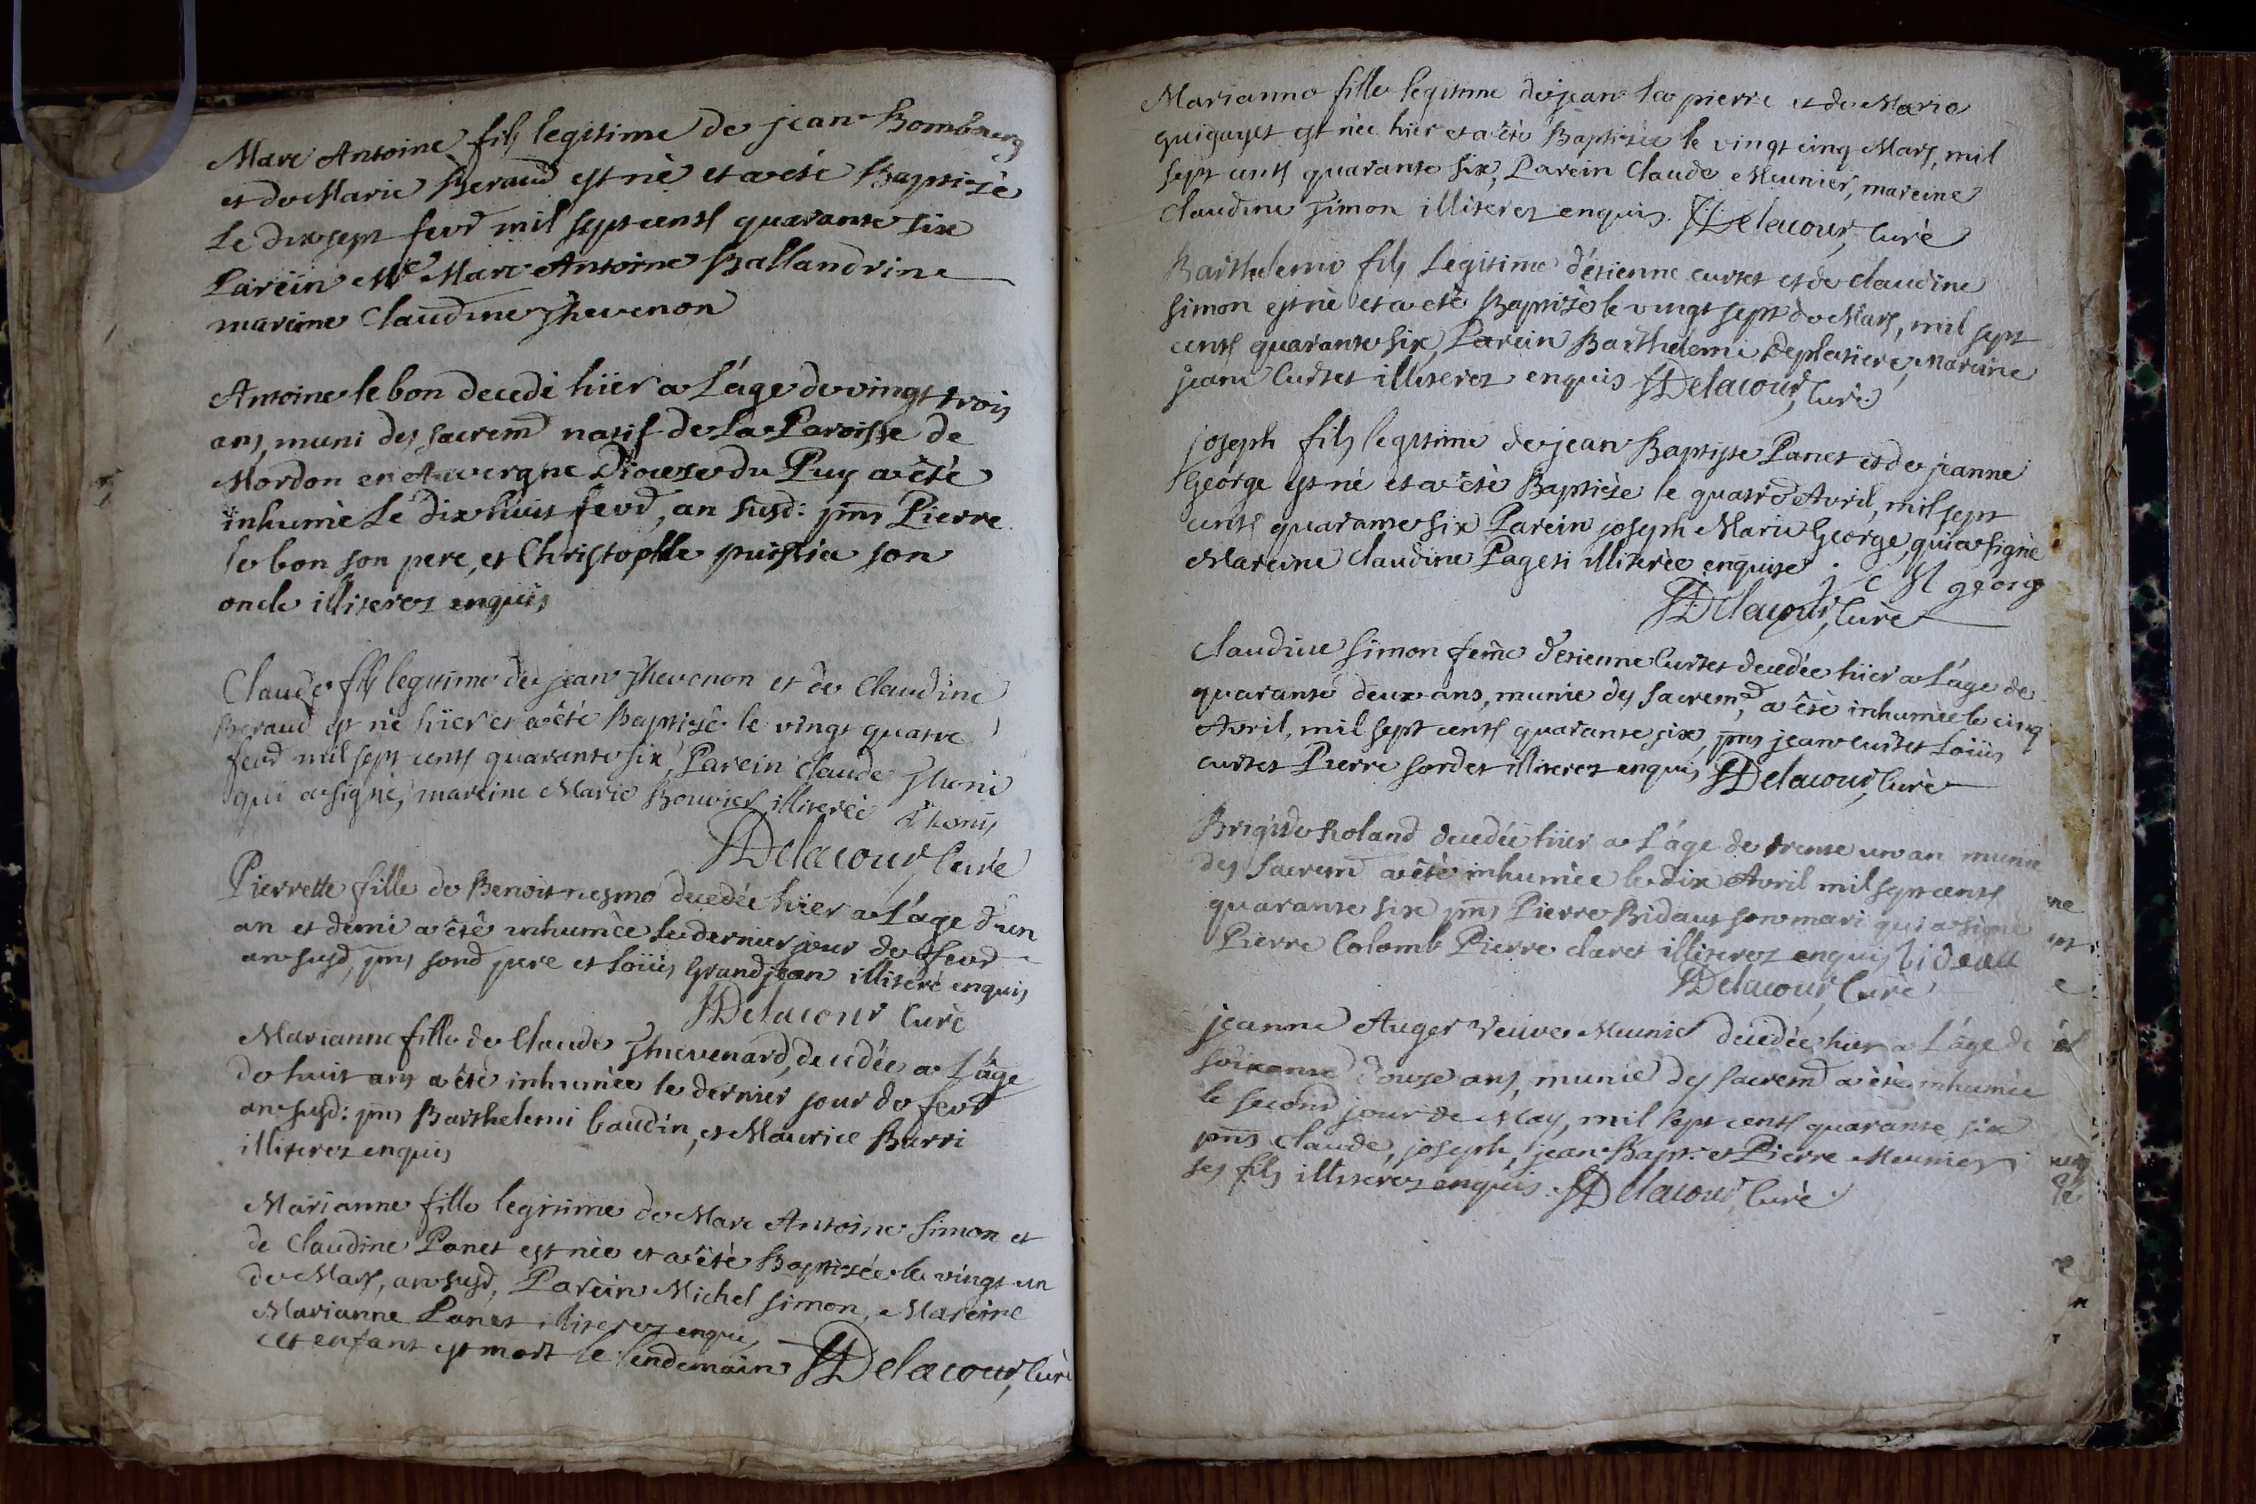 Marc Antoine fils legitime de jean Bombourg
et de Marie Beraud est né et a été Baptizé
Le dix sept fevr mil sept cents quarante six
Parein Mre Marc Antoine Ballandrine
mareine Claudine Thevenon
Antoine le bon decedé hiïer a L'áge de vingt trois
ans, muni des sacremd natif de La Paroisse de
Mordon en Auvergne Dioceze du Puy a été
inhumé Le dix huit fevr, an susd: pns Pierre
le bon son pere, et Christophle son
oncle illiterez enquis
Claude fils legitime de jean Thevenon et de Claudine
Beraud est né hïer et a été Baptizé le vingt quatre
fevr mil sept cents quarante six, Parein Claude Thoni
qui a signé, mareine Marie Bouvier illiterée Thoni
Delacour, Curé
Pierrette fille de Benoit nesmo decedée hïer a L'áge d'un
an et demi a été inhumée Le dernier jour de fevr
an susd, pns sond pere et Loüis Grandjean illiteré enquis
Delacour Curé
Marianne fille de Claude Thievenard, decedée a L'áge
de huit ans a été inhumée le dernier jour de fevr
an susd: pns Barthelemi baudin, et Maurice Burri
illiterez enquis
Marianne fille legitime de Marc Antoine Simon et
de Claudine Panet est née et a été Baptizée le vingt un
de Mars, an susd, Parein Michel Simon, Mareine
Marianne Panet illiterez enquis
cet enfant est mort le lendemain Delacour, Curé
Marianne fille legitime de jean La pierre et de Marie
guigayet est née hïer et a été Baptizée le vingt cinq Mars, mil
sept cents quarante six, Parein Claude Meunier, mareine
Claudine Simon illiterez enquis. Delacour, Curé
Barthelemi fils Legitime d'étienne curtet et de Claudine
Simon est né et a été Baptizé le vingt sept de Mars, mil sept
cents quarante six, Parein Barthelemi Deplatiere, Mareine
jeane Curtet illiterez enquis Delacour, Curé
joseph fils legitime de jean Baptiste Panet et de jeanne
George est né et a été Baptizé le quatre Avril, mil sept
cents quarante six Parein joseph Marie George, qui a signé
Mareine Claudine Pageti illiterée enquise
george
Delacour, Curé
Claudine Simon feme d'etienne Curtet decedée hïer a L'áge de
quarante deux ans, munie des sacremd, a été inhumée le cinq
Avril, mil sept cents quarante six, pns jean curtet Loüis
curtet Pierre sordet illiterez enquis Delacour, Curé
Brigide Roland decedée hïer a L'áge de trente un an munie
des sacremd a été inhumée le dix Avril mil sept cents
quarante six pns Pierre Bidaut son mari qui a signé
Pierre Colomb Pierre claret illiterez enquis bideau
Delacour, Curé
jeanne Auger veuve Meunier decedée hier a L'áge de
soixante douze ans, munie des sacremd a été inhumée
le second jour de May, mil sept cents quarante six
pns Claude, joseph, jean Bapt. et Pierre Meunier
ses fils illiterez enquis. Delacour Curé